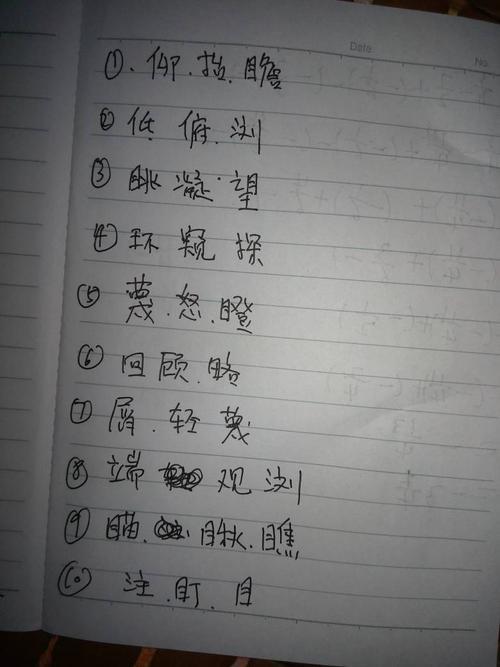 Date.
No.
①. 仰. 抬. 瞻
② 低. 俯. 浏
③ 眺 凝. 望
④ 环 窥 探
⑤ 蔑. 怒. 瞪
⑥ 回 顾. 略
⑦ 屑. 轻 蔑
⑧ 端 观 浏
⑨ 瞄. 瞅. 瞧
⑩ 注. 盯. 目